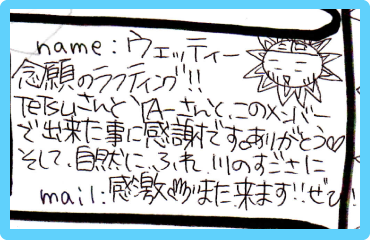 name:ウェッティー
念願のラフティング!!
Tetsuさんと、YAーさんと、このメンバー
で出来た事に感謝です。ありがとう♡
そして、自然に、ふれ、川のすごさに
mail:感激 また来ます!!ぜひ!